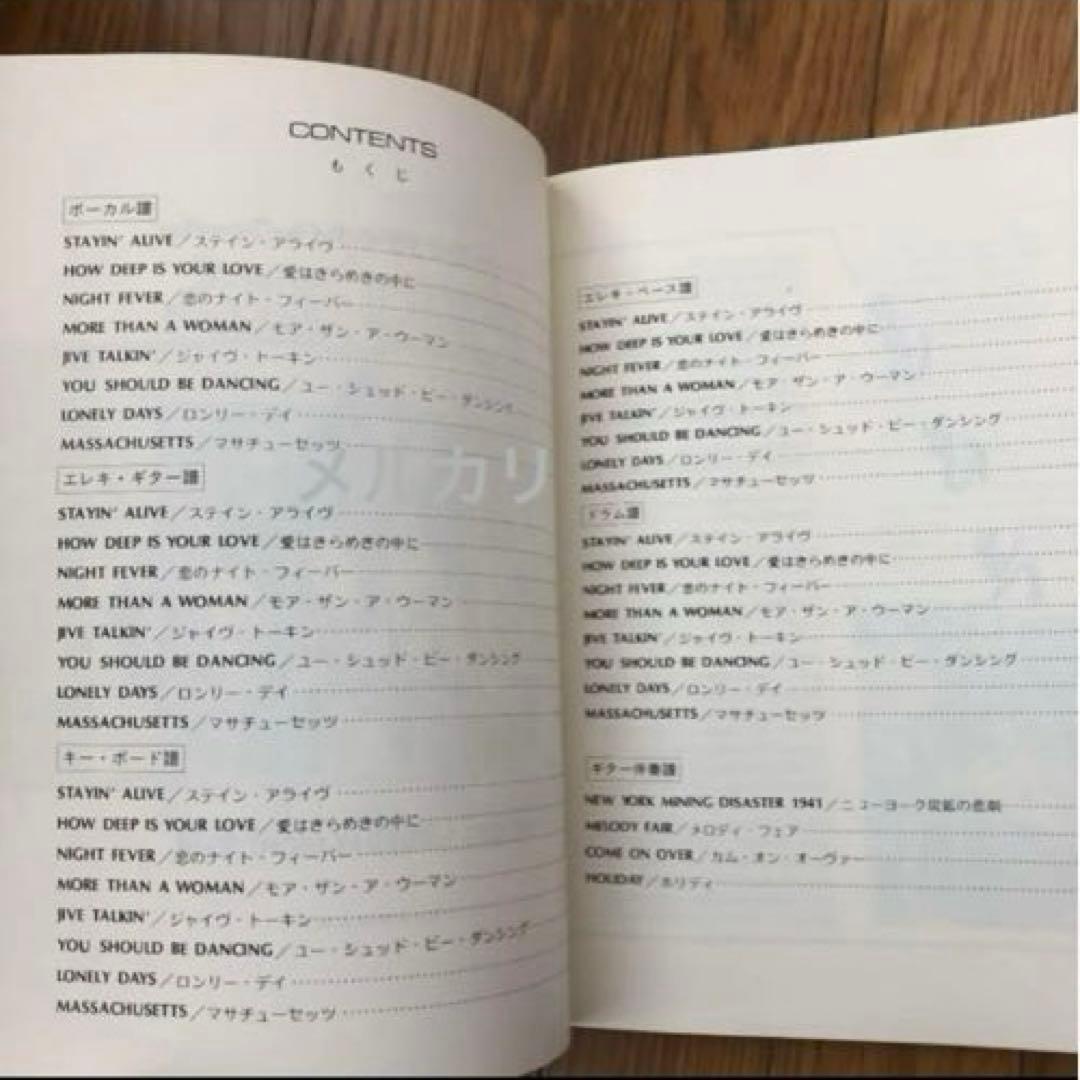 CONTENTS
もくじ
ボーカル譜
STAYIN' ALIVE/ステイン・アライヴ
HOW DEEP IS YOUR LOVE/愛はきらめきの中に
NIGHT FEVER/恋のナイト・フィーバー
MORE THAN A WOMAN/モア・ザン・ア・ウーマン
JIVE TALKIN'/ジャイヴ・トーキン
YOU SHOULD BE DANCING/ユー・シュッド・ビー・ダンシング
LONELY DAYS/ロンリー・デイ
MASSACHUSETTS/マサチューセッツ
エレキ・ギター譜
STAYIN' ALIVE/ステイン・アライヴ
HOW DEEP IS YOUR LOVE/愛はきらめきの中に
NIGHT FEVER/恋のナイト・フィーバー
MORE THAN A WOMAN/モア・ザン・ア・ウーマン
JIVE TALKIN'/ジャイヴ・トーキン
YOU SHOULD BE DANCING/ユー・シュッド・ビー・ダンシング
LONELY DAYS/ロンリー・デイ
MASSACHUSETTS/マサチューセッツ
キー・ボード譜
STAYIN' ALIVE/ステイン・アライヴ
HOW DEEP IS YOUR LOVE/愛はきらめきの中に
NIGHT FEVER/恋のナイト・フィーバー
MORE THAN A WOMAN/モア・ザン・ア・ウーマン
JIVE TALKIN'/ジャイヴ・トーキン
YOU SHOULD BE DANCING/ユー・シュッド・ビー・ダンシング
LONELY DAYS/ロンリー・デイ
MASSACHUSETTS/マサチューセッツ
エレキ・ベース譜
STAYIN' ALIVE/ステイン・アライヴ
HOW DEEP IS YOUR LOVE/愛はきらめきの中に
NIGHT FEVER/恋のナイト・フィーバー
MORE THAN A WOMAN/モア・ザン・ア・ウーマン
JIVE TALKIN'/ジャイヴ・トーキン
YOU SHOULD BE DANCING/ユー・シュッド・ビー・ダンシング
LONELY DAYS/ロンリー・デイ
MASSACHUSETTS/マサチューセッツ
ドラム譜
STAYIN' ALIVE/ステイン・アライヴ
HOW DEEP IS YOUR LOVE/愛はきらめきの中に
NIGHT FEVER/恋のナイト・フィーバー
MORE THAN A WOMAN/モア・ザン・ア・ウーマン
JIVE TALKIN'/ジャイヴ・トーキン
YOU SHOULD BE DANCING/ユー・シュッド・ビー・ダンシング
LONELY DAYS/ロンリー・デイ
MASSACHUSETTS/マサチューセッツ
ギター伴奏譜
NEW YORK MINING DISASTER 1941/ニューヨーク炭鉱の悲劇
MELODY FAIR/メロディ・フェア
COME ON OVER/カム・オン・オーヴァー
HOLIDAY/ホリディ
メルカリ